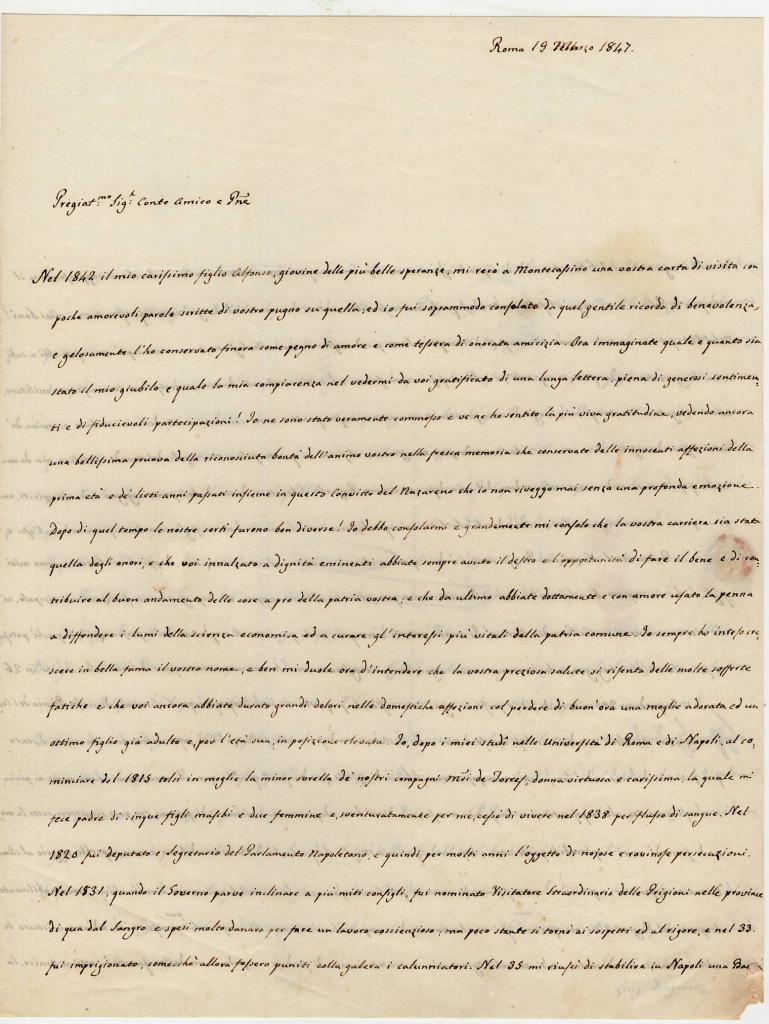 Roma 19 Marzo 1847.
Pregiat.mo Sig.r Conte Amico e Pne
Nel 1842 il mio carissimo figlio Alfonso, giovine delle più belle speranze, mi recò a Montecassino una vostra carta di visita con
poche amorevoli parole scritte di vostro pugno su quella, ed io fui soprammodo consolato da quel gentile ricordo di benevolenza,
e gelosamente l'ho conservato finora come pegno di amore e come tessera di onorata amicizia. Ora immaginate quale e quanto sia
stato il mio giubilo, e quale la mia compiacenza nel vedermi da voi gratificato di una lunga lettera, piena di generosi sentimen=
ti e di fiducievoli partecipazioni! Io ne sono stato veramente commosso e ve ne ho sentito la più viva gratitudine, vedendo ancora
una bellissima pruova della riconosciuta bontà dell'animo vostro nella fresca memoria che conservate delle innocenti affezioni della
prima età e de' lieti anni passati insieme in questo Convitto del Nazareno che io non riveggo mai senza una profonda emozione.
Dopo di quel tempo le nostre sorti furono ben diverse! Io debbo consolarmi e grandemente mi consolo che la vostra carriera sia stata
quella degli onori, e che voi innalzato a dignità eminenti abbiate sempre avuto il destro e l'opportunità di fare il bene e di con=
tribuire al buon andamento delle cose a pro della patria vostra; e che da ultimo abbiate dottamente e con amore usato la penna
a diffondere i lumi della scienza economica ed a curare gl'interessi più vitali della patria comune. Io sempre ho inteso cre=
scere in bella fama il vostro nome, e ben mi duole ora d'intendere che la vostra preziosa salute si risenta delle molte sofferte
fatiche e che voi ancora abbiate durato grandi dolori nelle domestiche affezioni col perdere di buon'ora una moglie adorata ed un
ottimo figlio già adulto e, per l'età sua, in posizione elevata. Io, dopo i miei studi nelle Università di Roma e di Napoli, al co=
minciare del 1815 tolsi in moglie la minor sorella de' nostri compagni de Torres, donna virtuosa e carissima, la quale mi
fece padre di cinque figli maschi e due femmine e, sventuratamente per me, cessò di vivere nel 1838 per flusso di sangue. Nel
1820 fui deputato e Segretario del Parlamento Napoletano, e quindi per molti anni l'oggetto di nojose e rovinose persecuzioni.
Nel 1831, quando il Governo parve inclinare a più miti consigli, fui nominato Visitatore Straordinario delle Prigioni nelle province
di qua dal Sangro e spesi molto danaro per fare un lavoro coscienzioso; ma poco stante si tornò ai sospetti ed al rigore, e nel 33.
fui imprigionato, comechè allora fossero puniti colla galera i calunniatori. Nel 35 mi riuscì di stabilire in Napoli una